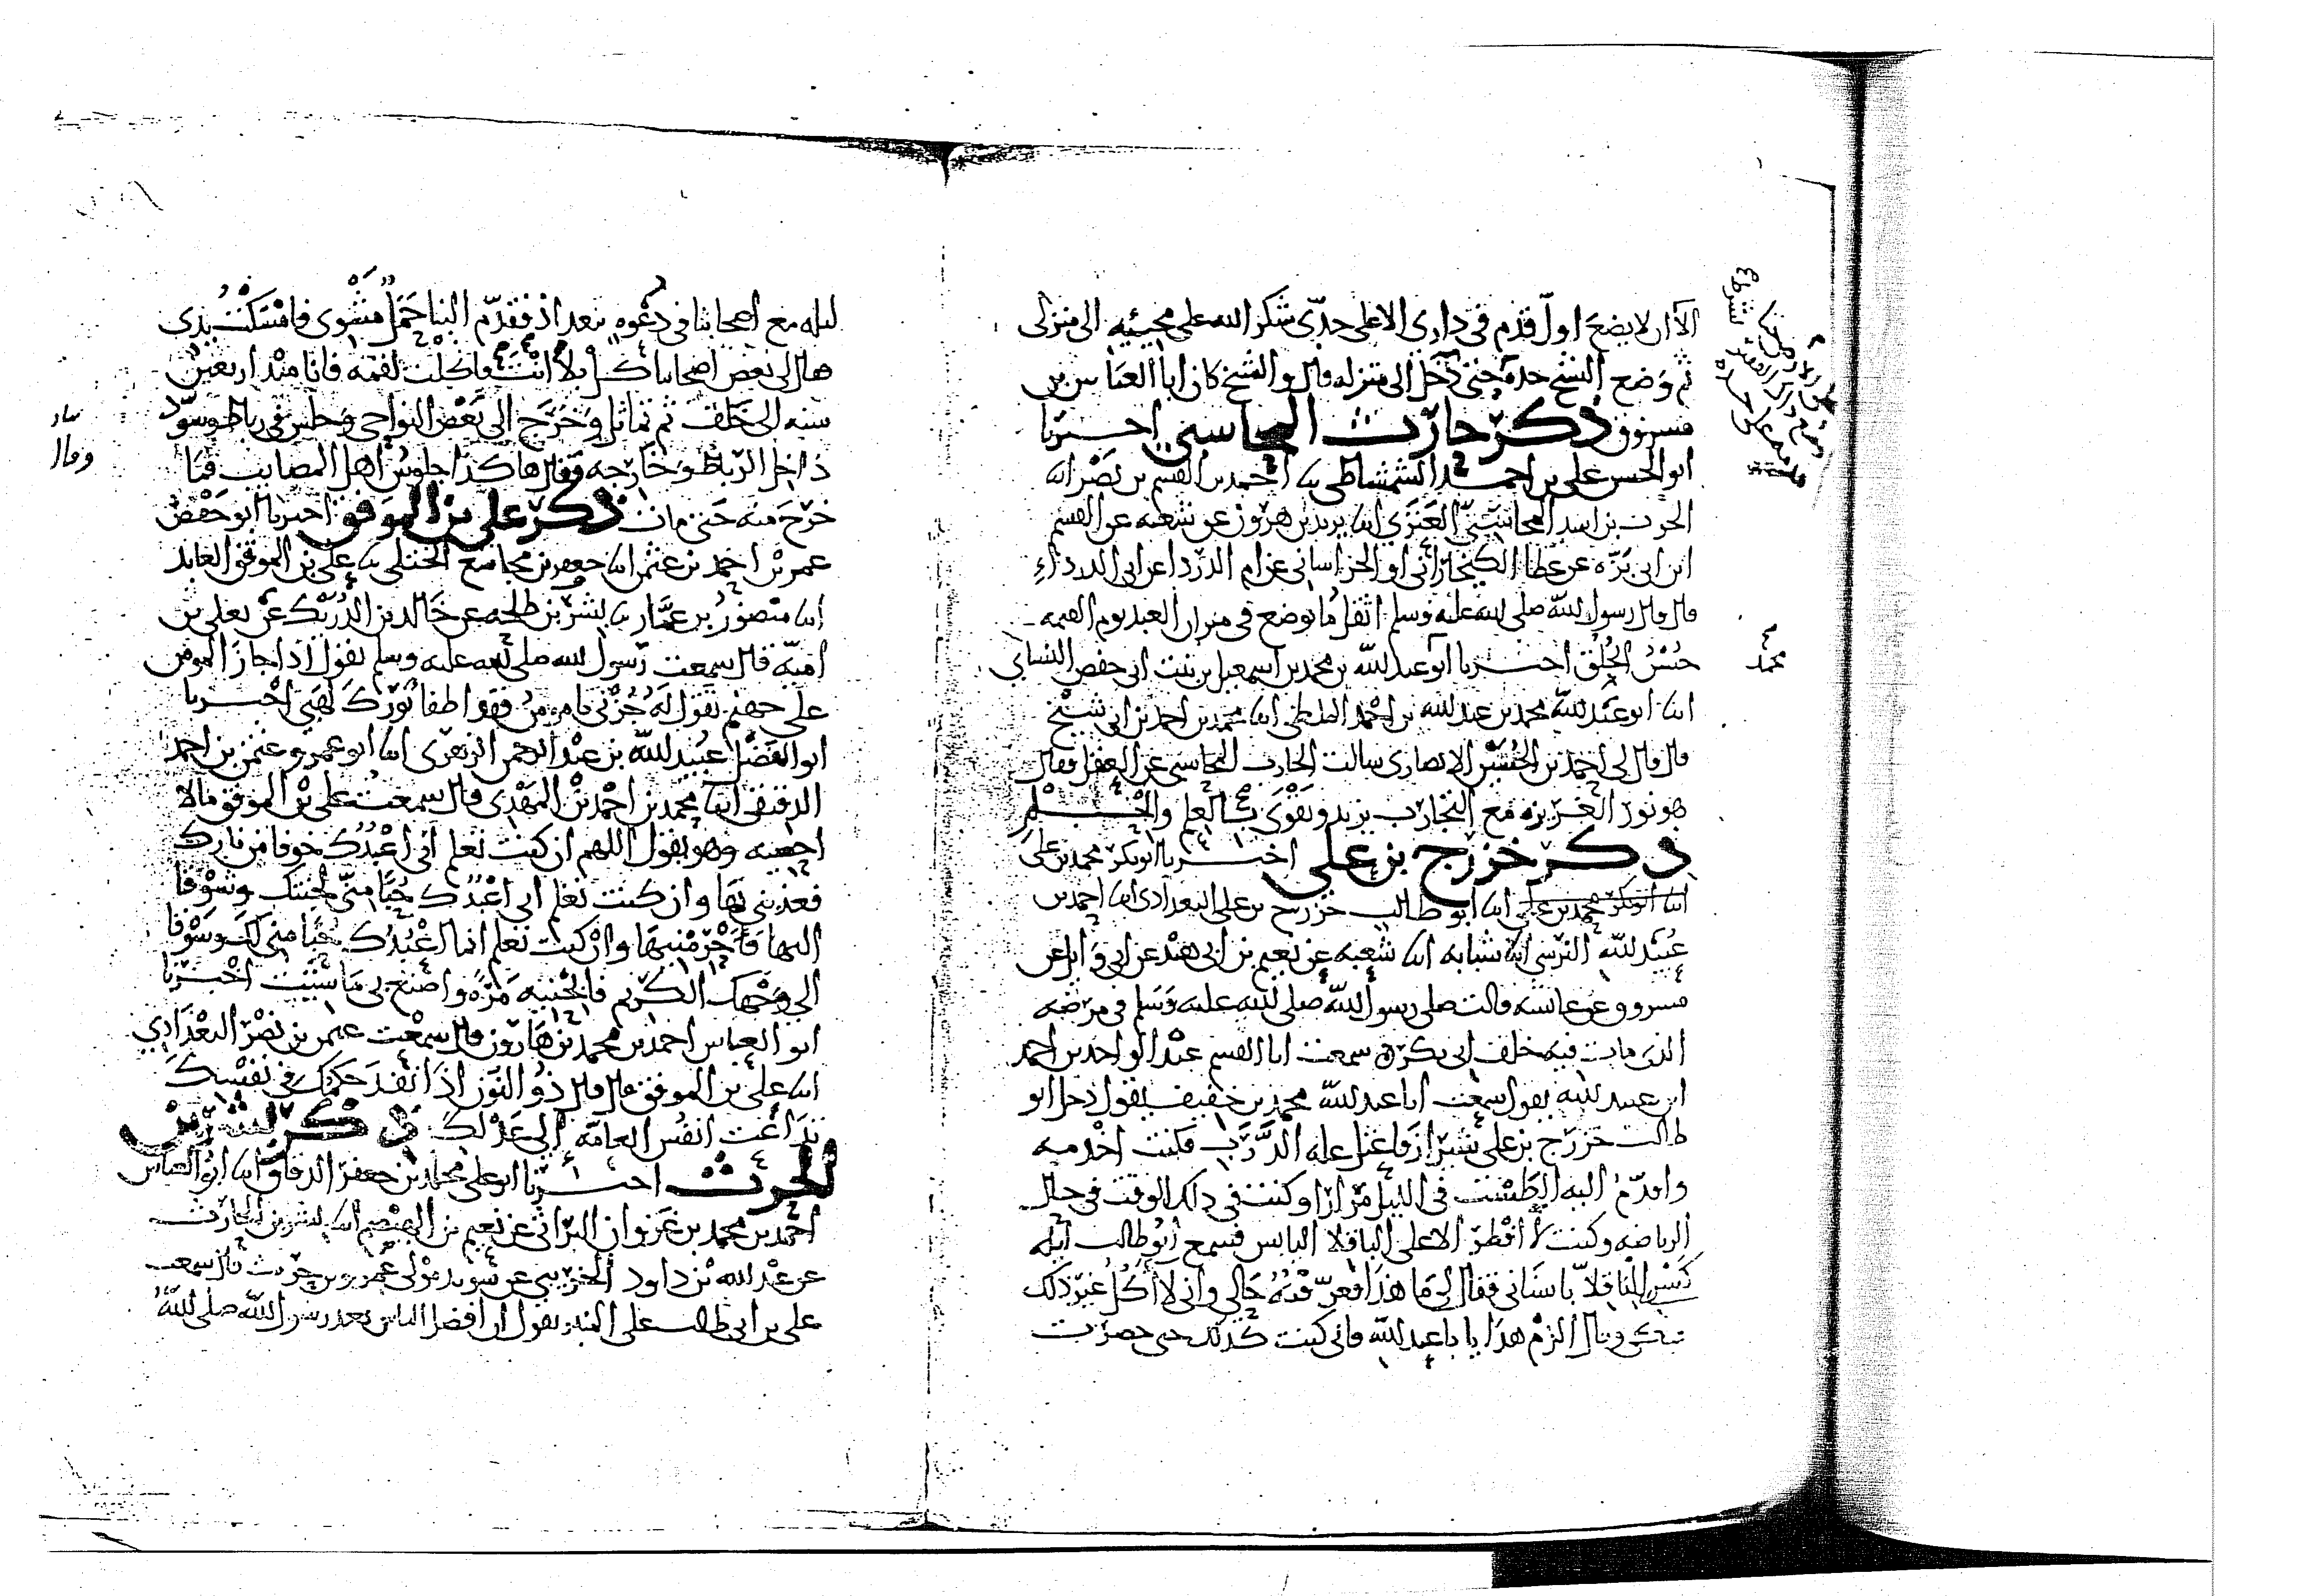 الا ان لا يضع اول قدم في داري الا على خدي شكر الله على مجيئه الى منزلي
ثم وضع الشيخ خده حتى دخل الى منزله قال والشيخ كان ابا العباس بن
مسروق ذكر حارث المحاسبي اخبرنا
ابو الحسن علي بن احمد الشمشاطي نا احمد بن القسم بن نصر انا
الحرث بن اسد المحاسبي العنزي انا يزيد بن هرون عن شعبه عن القسم
ابن ابي بزه عن عطا الكيخاراني او الخراساني عن ام الدردا عن ابي الدرداء
قال قال رسول الله صلى الله عليه وسلم اثقل ما يوضع في ميزان العبد يوم القيمه
حسن الخلق اخبرنا ابو عبد الله بن محمد بن اسمعيل بن بنت ابي حفص النسابي
انا ابو عبد الله محمد بن عبد الله بن احمد انا محمد بن احمد بن ابي شيخ
قال قال لي احمد بن الحسن الانصاري سالت الحارث المحاسبي عن العقل فقال
هو نور الغريزه مع التجارب يزيد ويقوى بالعلم والحلم
ذكر خزرج بن علي اخبرنا ابو بكر محمد بن علي
انا ابو بكر محمد بن علي انا ابو طالب خزرج بن علي البغدادي انا احمد بن
عبيد الله النرسي انا شبابه انا شعبه عن نعيم بن ابي هند عن ابي وايل عن
مسروق عن عائشه قالت صلى رسول الله صلى الله عليه وسلم في مرضه
الذي مات فيه خلف ابي بكر سمعت ابا القسم عبد الواحد بن احمد
ابن عبيد الله يقول سمعت ابا عبد الله محمد بن خفيف يقول دخل ابو
طالب خزرج بن علي شيراز فاعتل عله الذرب فكنت اخدمه
واقدم اليه الطشت في الليل مرارا وكنت في ذلك الوقت في حال
الرياضه وكنت لا افطر الا على الباقلا اليابس فسمع ابو طالب ليله
كسر الباقلا باسناني فقال لي ما هذا فعرفته حالي واني لا اكل غير ذلك
فبكى وقال الزم هذا يا با عبد الله فاني كنت كذلك حتى حضرت
محمد
ليله مع اصحابنا في دعوه ببغداذ فقدم الينا حمل مشوي فامسكت يدي
فقال لي بعض اصحابنا كل بلا انت فاكلت لقمه فانا منذ اربعين
سنه الى خلف ثم تماثل وخرج الى بعض النواحي وجلس في رباط وسود
داخل الرباط وخارجه فقال هاكذا جلوس اهل المصايب فما
خرج منه حتى مات ذكر علي بن الموفق اخبرنا ابو حفص
عمر بن احمد بن عثمن انا جعفر بن مجاشع الختلي نا علي بن الموفق العابد
انا منصور بن عمار نا بشر بن طلحه عن خالد بن الدريك عن يعلى بن
اميه قال سمعت رسول الله صلى الله عليه وسلم يقول اذا جاز المومن
على جهنم تقول له جزني يا مومن فقد اطفا نورك لهبي اخبرنا
ابو الفضل عبيد الله بن عبد الرحمن الزهري انا ابو عمرو عثمن بن احمد
الدقيقي انا محمد بن احمد بن المهدي قال سمعت علي بن الموفق مالا
احصيه وهو يقول اللهم ان كنت تعلم اني اعبدك خوفا من نارك
فعذبني بها وان كنت تعلم اني اعبدك حبا مني لجنتك وشوقا
اليها فاحرمنيها وان كنت تعلم انما اعبدك حبا مني لك وشوقا
الى وجهك الكريم فابحنيه مره واصنع بي ما شيت اخبرنا
ابو العباس احمد بن محمد بن هارون قال سمعت عمر بن نصر البغدادي
انا علي بن الموفق قال قال ذو النون اذا نفذ حكمك في نفسك
تداعت انفس العامه الى عدلك ذكر بشر بن
الحرث اخبرنا ابو علي محمد بن جعفر الدقاق انا ابو العباس
احمد بن محمد بن غزوان البراثي عن نعيم بن الهيصم انا بشر بن الحارث
عن عبد الله بن داود الخريبي عن سويد مولى عمرو بن حريث قال سمعت
علي بن ابي طالب على المنبر يقول ان افضل الناس بعد رسول الله صلى الله
وقال